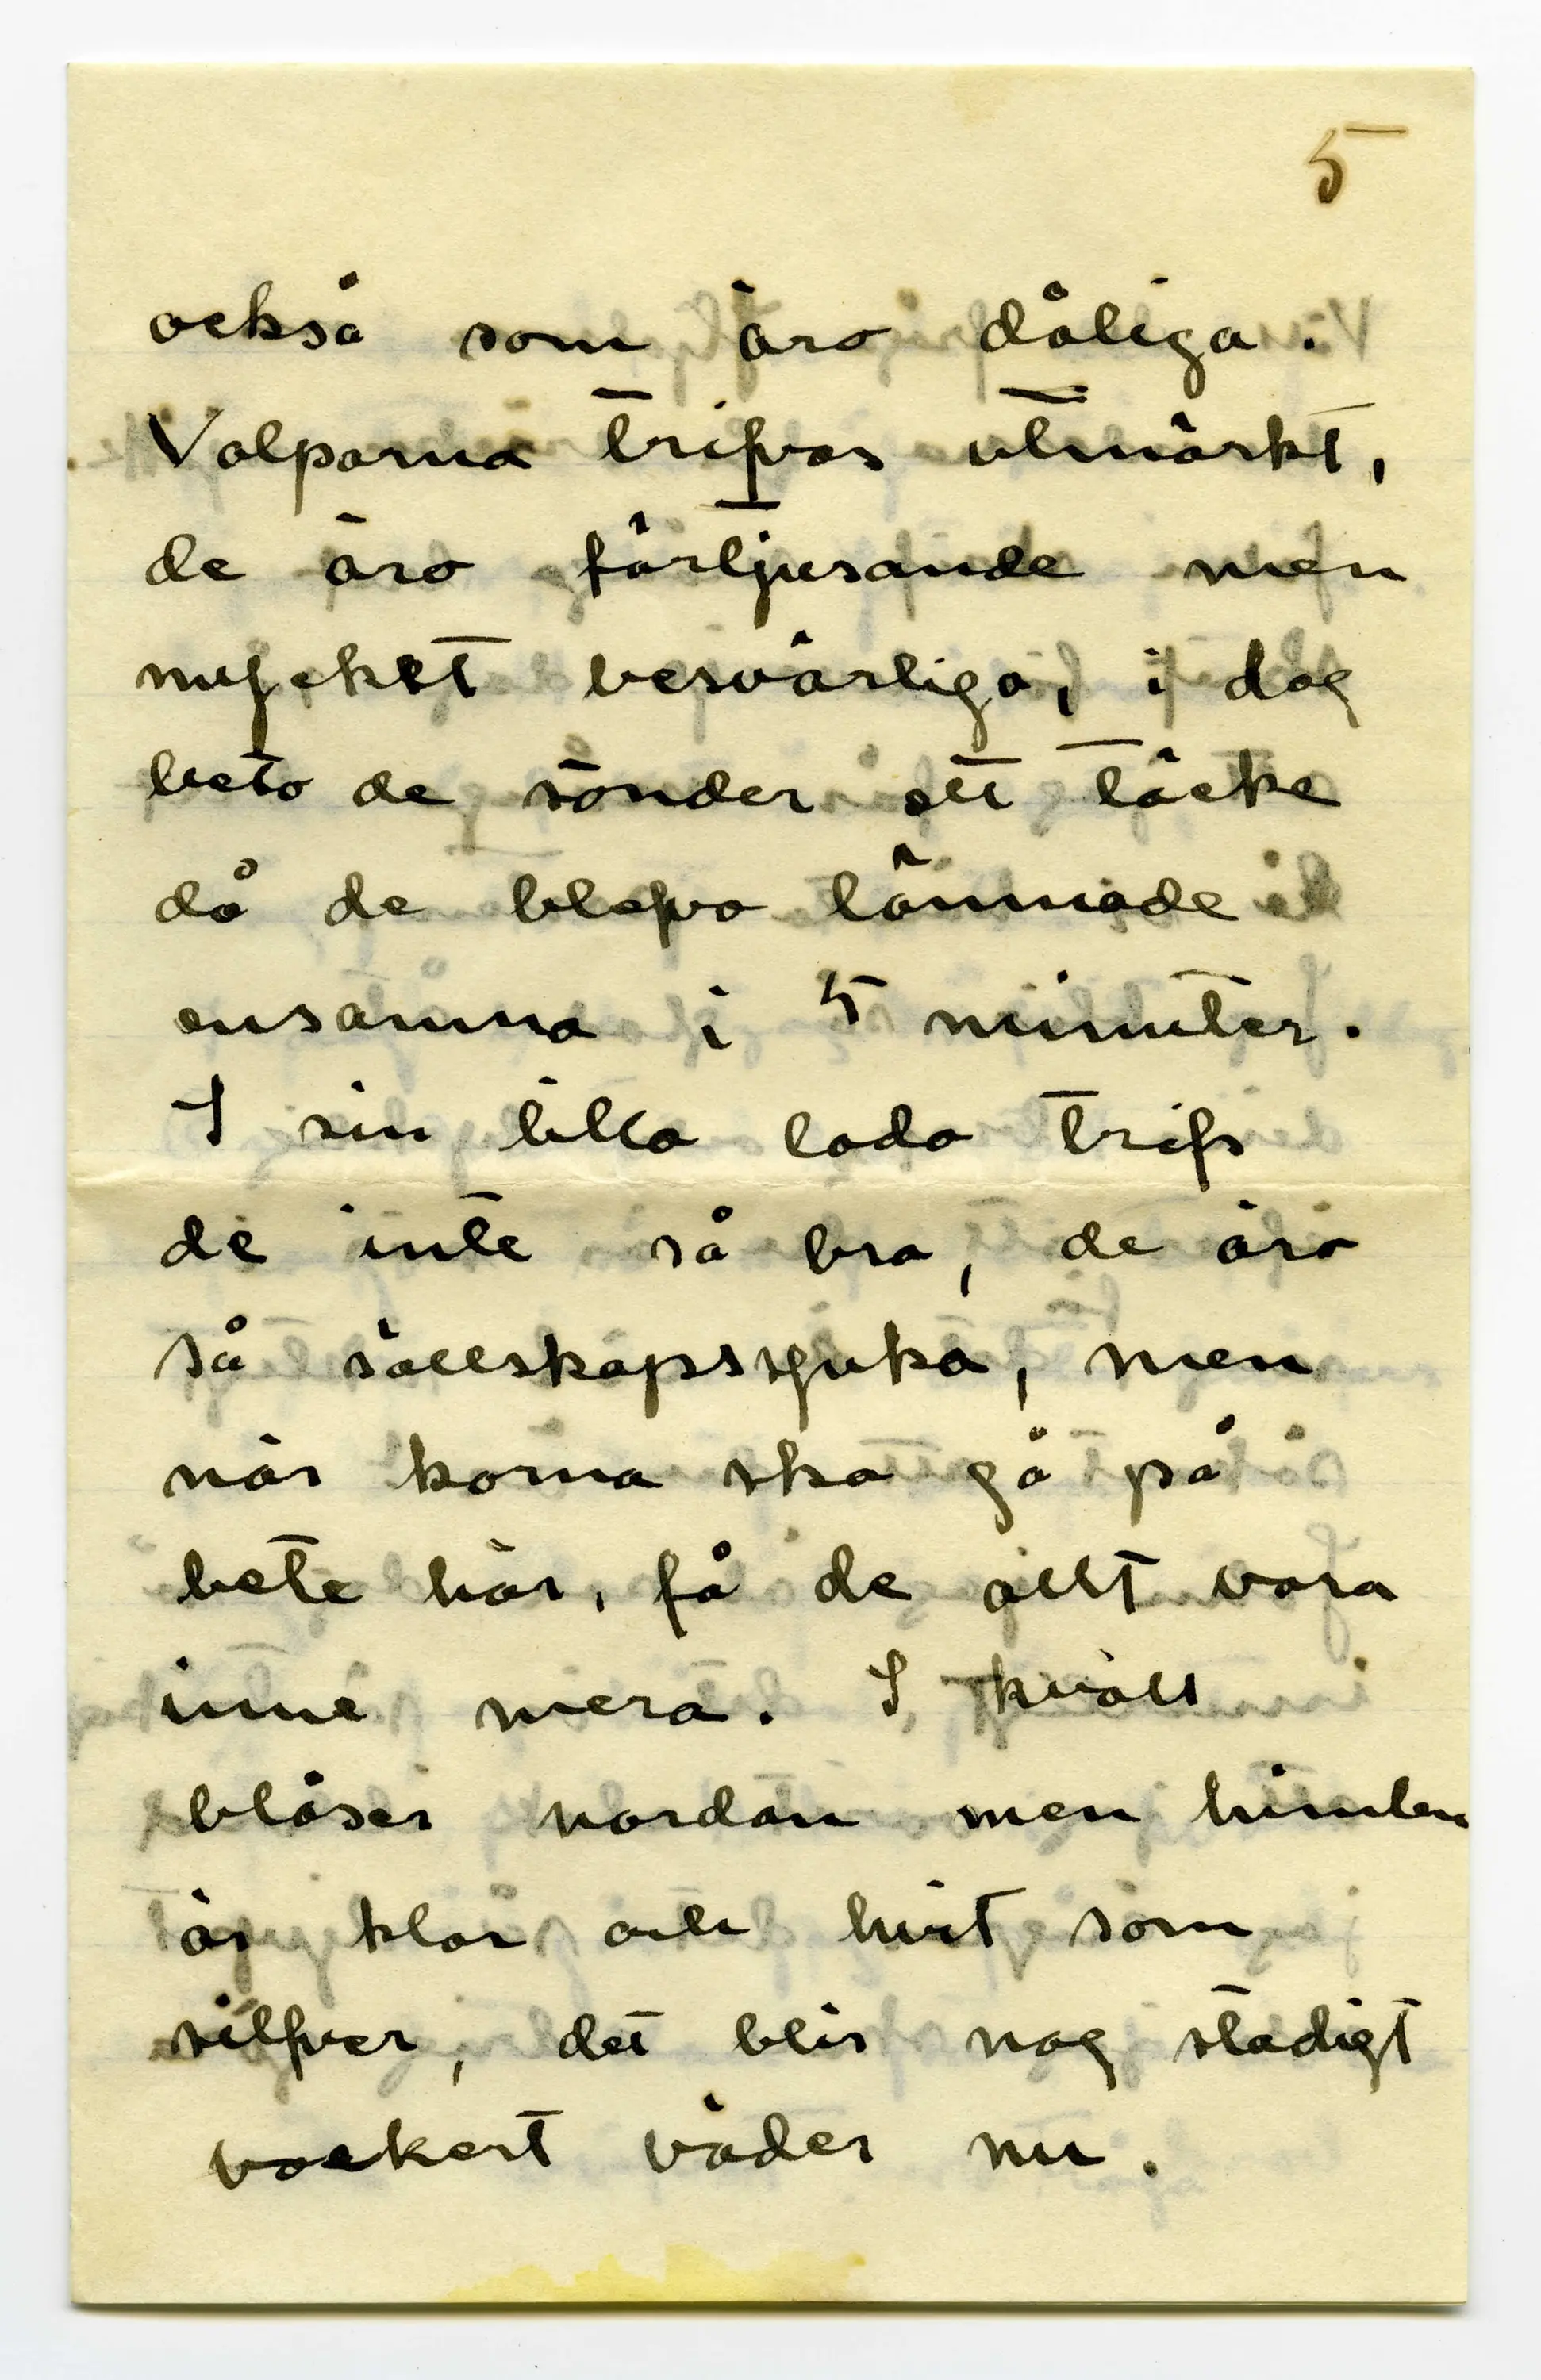 5
också som äro dåliga.
Valparna trifvas utmärkt,
de äro förtjusande men
myckett besvärliga, i dag
beto de sönder ett täcke
då de blefvo lämnade
ensamna i 5 minuter.
I sin lilla lada trifs
de inte så bra, de äro
så sällskapssjuka, men
när korna ska gå på
bete här, få de allt vara
inne mera. I kväll
blåser nordan men himlen
är klar och hvit som
silfver, det blir nog stadigt
vackert väder nu.